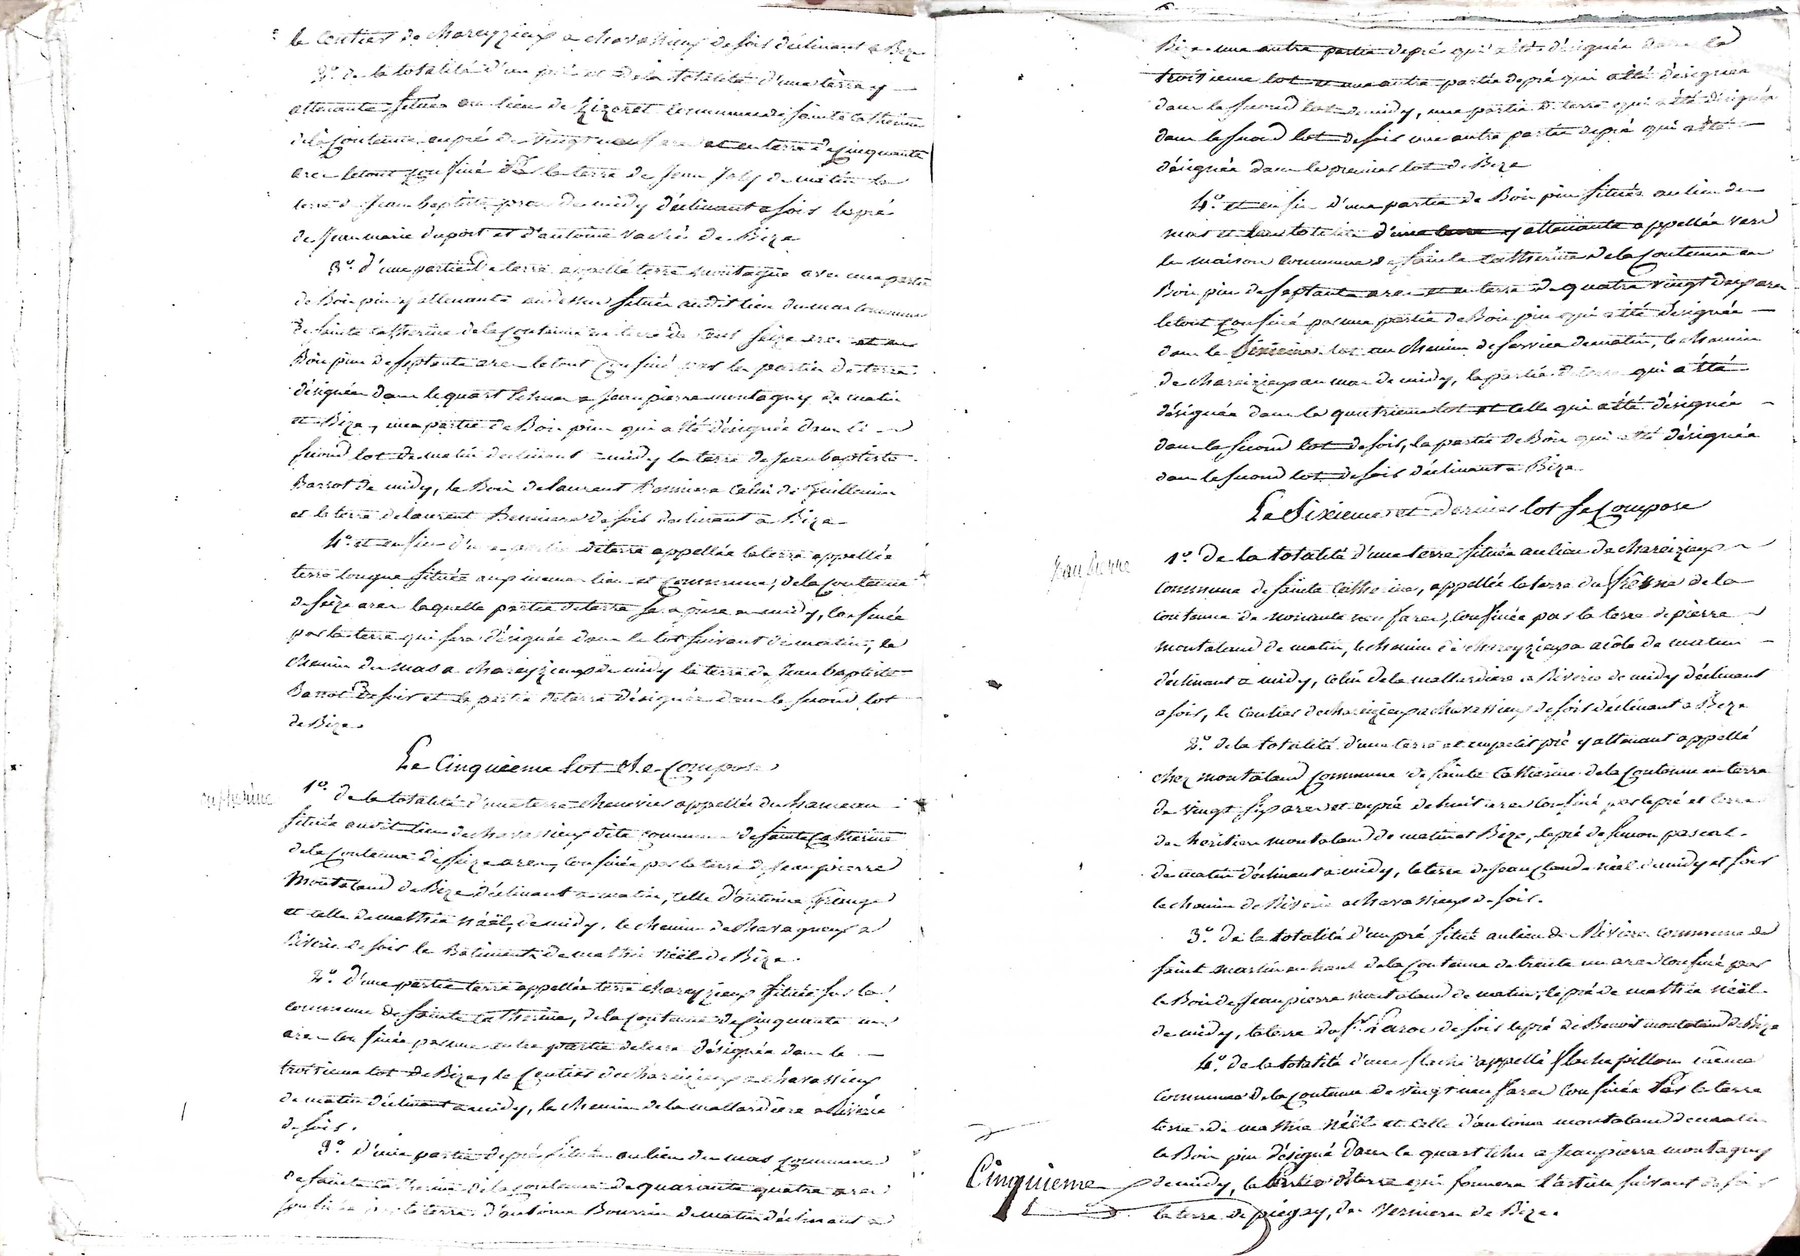 le Centier de chareyzieux a chavassieux de soir déclinant a Bize
2º. de la totalité d'un pré et de la totalité d'une terre y
attenante située au lieu de Commune de sainte Catherine
de la Contenue en pré de vingt neuf ares et en terre de Cinquante
ares le tout confiné par la terre de Jean de matin la
terre de Jean baptiste de midy déclinant a soir le pré
de Jean marie dupont et d'antoine de Bize
3º. d'une partie de terre appellé terre montagne avec une partie
de Bois pin y attenante au dessus située audit lieu du mas commune
de sainte Catherine de la Contenue en terre de cent seize ares et en
Bois pin de septante ares le tout Confiné par les parties de terre
désignées dans le quart échu a Jean pierre montagny de matin
et Bize, une partie de Bois pin qui a été désignée dans le
second lot de matin déclinant a midy la terre de Jean baptiste
Barrot de midy, le Bois de laurent Celui de Guillemin
et la terre de laurent de soir déclinant a Bize
4º. et enfin d'une partie de terre appellée la terre appellée
terre longue située aux memes lieu et Commune, de la Contenue
de seize ares laquelle partie de terre se a midy, Confinée
par la terre qui sera désignée dans le lot suivant de matin, le
chemin du mas a chareyzieux de midy la terre de Jean baptiste
Barrot de soir et la partie de terre désignée dans le second lot
de Bize.
Le Cinquieme lot Se Compose
1º. de la totalité d'une terre appellée du hameau
située audit lieu de chavassieux dite commune de sainte Catherine
de la Contenue de seize ares, Confinée par la terre de Jean pierre
Montaland de Bize déclinant a matin, celle d'antoine Grange
et celle de mathie Néël, de midy, le chemin de a
Riverie de soir le Batiment de mathie Néël de Bize.
2º. d'une partie terre appellée terre chareyzieux située sur la
commune de sainte Catherine, de la contenue de Cinquante un
ares Confinée par une autre partie de terre désignée dans le
troisieme lot de Bize, le Centier de chareizieux a chavassieux
de matin déclinant a midy, le chemin de la mallardiere a Riverie
de soir.
3º. d'une partie de pré située au lieu du mas Commune
de sainte Catherine de la contenue de quarante quatre ares
Confinée par la terre d'antoine Bourrin de matin déclinant a
Bize une autre partie de pré qui a été désignée dans le
troisieme lot et une autre partie de pré qui a été désignée
dans le second lot de midy, une partie de terre qui a été désignée
dans le second lot de soir une autre partie de pré qui a été
désignée dans le premier lot de Bize
4º. et enfin d'une partie de Bois pin située au lieu du
mas et la totalité d'une terre y attenante appellée vers
la maison commune de sainte Catherine de la Contenue en
Bois pin de septante ares et en terre de quatre vingt deux ares
le tout Confiné par une partie de Bois pin qui a été désignée
dans le Sixieme lot un chemin de service de matin, le chemin
de chareizieux au mas de midy, la partie de terre qui a été
désignée dans le quatrieme lot et celle qui a été désignée
dans le second lot de soir, la partie de Bois qui a été désignée
dans le second lot de soir déclinant a Bize.
Le Sixieme et dernier lot Se Compose
Jean pierre
1º. De la totalité d'une terre située au lieu de chareizieux
commune de sainte Catherine, appellée la terre du frêne de la
contenue de nonante neuf ares, confinée par la terre de pierre
montaland de matin, le chemin de chareyzieux a côté de matin
déclinant a midy, celui de la mallardiere a Riverie de midy déclinant
a soir, le Centier de chareizieux a chavassieux de soir déclinant a Bize
2º. de la totalité d'une terre et un petit pré y attenant appellé
chez montaland Commune de sainte Catherine de la Contenue en terre
de vingt sept ares et en pré de huit ares Confiné par le pré et terre
des héritiers montaland de matin et Bize, le pré de simon pascal
de matin déclinant a midy, la terre de Jean Claude Néël de midy et soir
le chemin de Riverie a chavassieux de soir.
3º. de la totalité d'un pré situé au lieu de Riviere commune de
saint martin en haut de la Contenue de trente un ares Confiné par
le Bois de Jean pierre montaland de matin, le pré de mathie Néël
de midy, la terre du sr. de soir le pré de Benoit montaland de Bize
4º. de la totalité d'une fleche appellé fleche pillon même
commune de la Contenue de vingt neuf ares Confinée par la terre
terre de mathie Néël et celle d'antoine montaland de matin
le Bois pin désigné dans le quart échu a Jean pierre montagny
de midy, la partie de terre qui formera l'article suivant de soir
la terre de piegay, de Bize.
Cinquieme